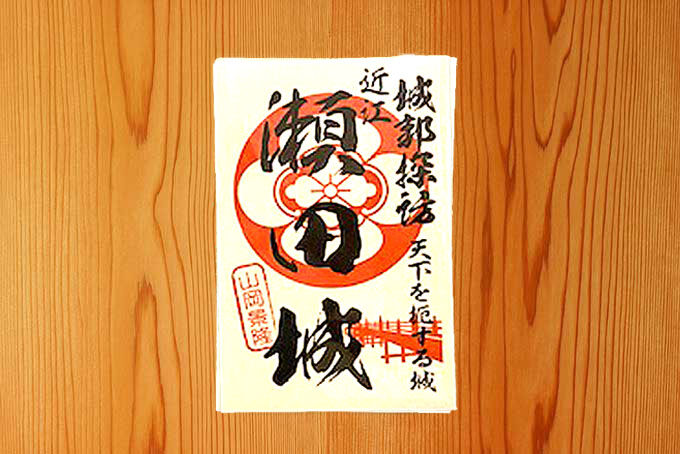 城郭探訪 天下を扼する城
近江
瀬田城
山岡景隆